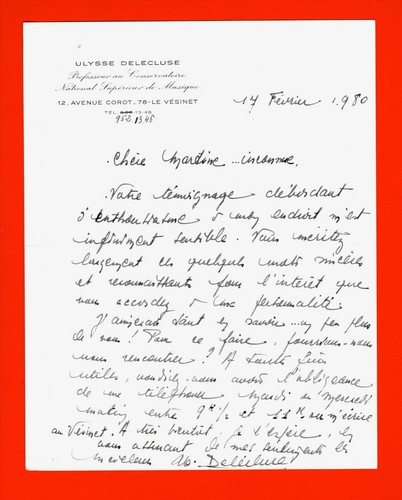 ULYSSE DELÉCLUSE
Professeur au Conservatoire
National Supérieur de Musique
12, AVENUE COROT, 78-LE VÉSINET
TÉL. 13-46
952.13.46
17 Février 1.980
Chère Martine... inconnue,
Votre témoignage débordant
d'enthousiasme à mon endroit m'est
infiniment sensible. Vous méritez
largement ces quelques mots sincères
et reconnaissants pour l'intérêt que
vous accordez à ma personnalité.
J'aimerais tant en savoir... un peu plus
de vous! Pour ce faire, pourrions-nous
nous rencontrer? A toutes fins
utiles, voudriez-vous avoir l'obligeance
de me téléphoner mardi ou mercredi
matin entre 9h 1/2 et 11h, ou m'écrire
au Vésinet. A très bientôt, je l'espère, en
vous assurant de mes sentiments les
meilleurs Delécluse